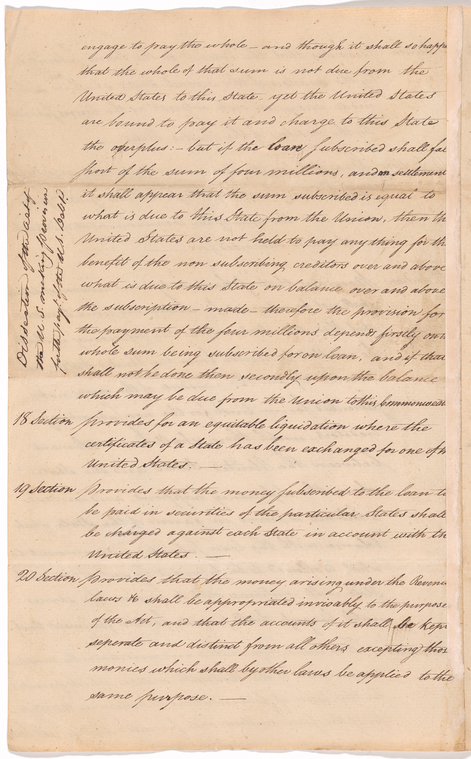 engage to pay the whole – and though it shall so happ
that the whole of that sum is not due from the
United States to this State, yet the United States
are bound to pay it and charge to this State
the overplus: – but if the loan subscribed shall fal
short of the sum of four millions, and on settlement
it shall appear that the sum subscribed is equal to
what is due to this State from the Union, then th
United States are not held to pay any thing for th
benefit of the non subscribing creditors over and above
what is due to this State on balance over and above
the subscription – made – therefore the provision for
the payment of the four millions depends firstly on
whole sum being subscribed for on loan, and if that
shall not be done then secondly upon the balance
which may be due from the Union to this Commonwealt
18 Section provides for an equitable liquidation where the
certificates of a State has been exchanged for one of
United States. —
19 Section Provides that the money subscribed to the loan to
be paid in securities of the particular States shall
be charged against each State in account with th
United States. —
20 Section Provides that the money arising under the Revenu
laws &c shall be appropriated inviolably to the purpose
of the Act, and that the accounts of it shall be kep
seperate and distinct from all others excepting thos
monies which shall by other laws be applied to the
same purpose. —
Dissection of the Act of
the U. S. making provision
for the paym't of the U. S. Debt